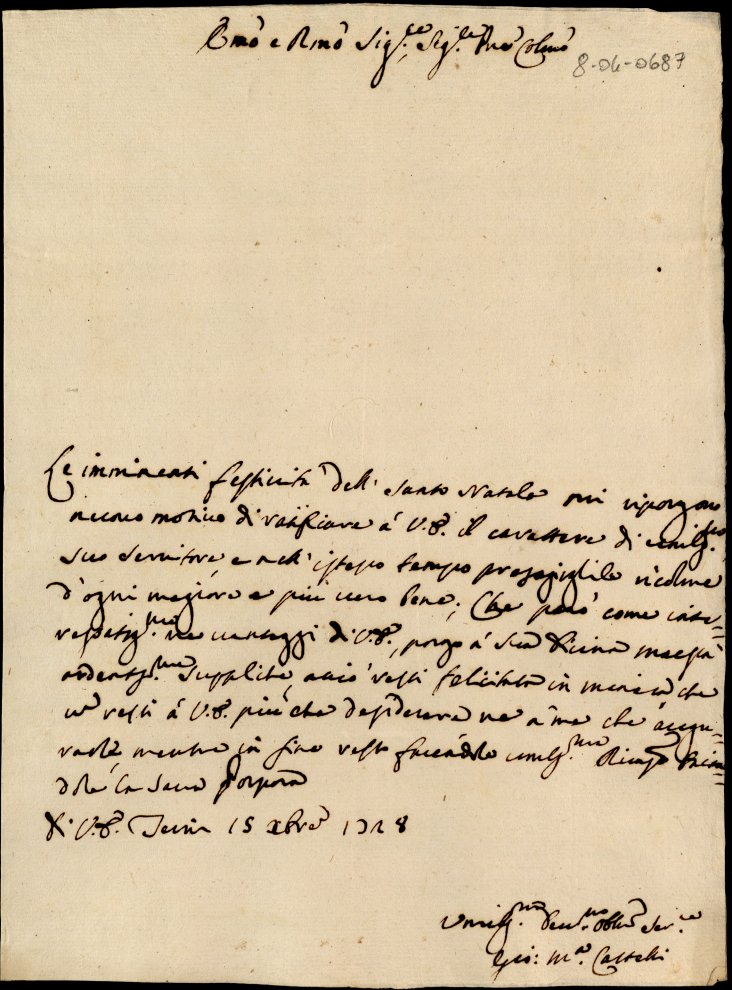 Emo e Rmo Sig.re Sig.re Pron Colmo
8-04-0687
Le imminenti festiuità dell' Santo Natale mi riporgono
nuouo motiuo di ratificare á V.E. il carattere di umiliss.mo
suo Seruitore, e nell' istesso tempo presagirlile ricolme
d'ogni magiore e piú uero bene; Che peró come inte=
ressatiss.mo ne uantaggi di V.E., porgo á Sua Diuina Maestá
ardentiss.me Suppliche, acció resti felicitata in maniera che
nõ resti á V.E. piú che desiderare ne á me che augu=
rarle, mentre in fine resto facendole umiliss.ma Riuer.a Bacian=
dole la Sacra Porpora
Di V.E. 15 xbre 1728
Umiliss.mo Deu.mo Obbl.mo Ser.re
Gio: M.a Castelli